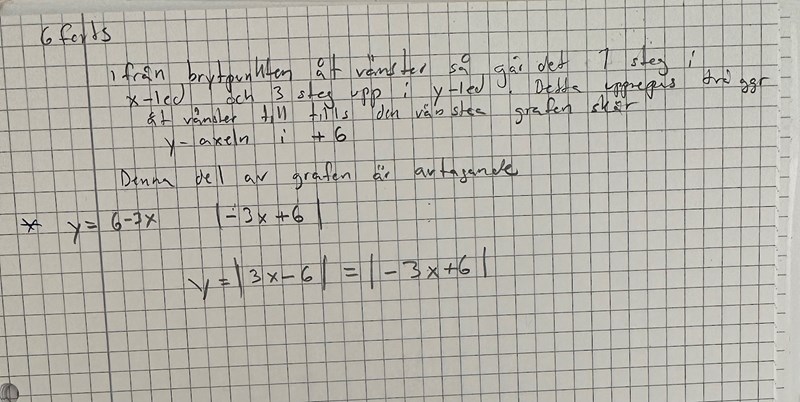 6 forts
från brytpunkten åt vänster så går det 1 steg i
x-led och 3 steg upp i y-led. Detta upprepas två ggr
åt vänster till tills den vänstra grafen skär
y-axeln i +6
Denna del av grafen är avtagande
* y= 6-3x |-3x+6|
y=|3x-6| = |-3x+6|